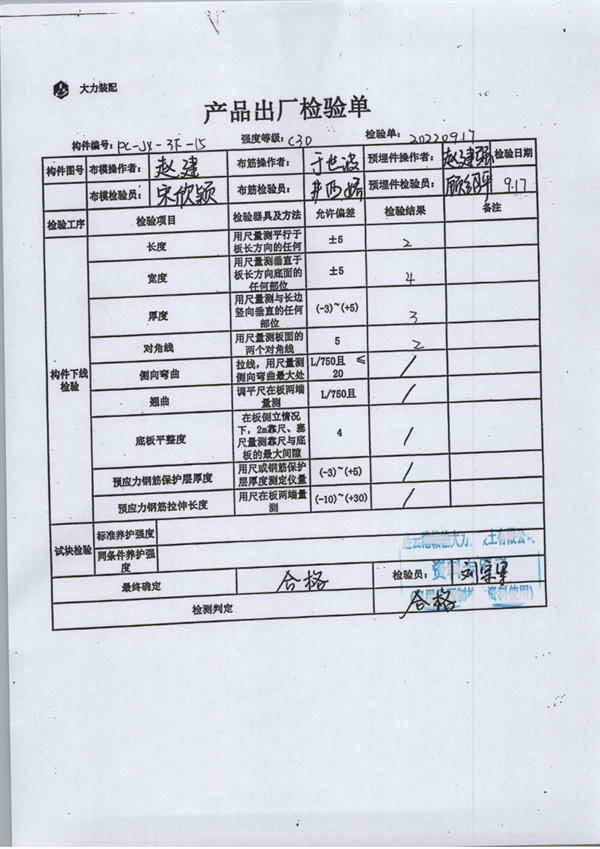 大力装配
产品出厂检验单
构件编号: PC-JX-3F-15 强度等级: C30 检验单: 20220917
构件图号 布模操作者: 赵建 布筋操作者: 于世波 预埋件操作者: 赵建强 检验日期
布模检验员: 宋欣颖 布筋检验员: 预埋件检验员: 9.17
检验工序 检验项目 检验器具及方法 允许偏差 检验结果 备注
构件下线检验
长度 用尺量测平行于板长方向的任何 ±5 2
宽度 用尺量测垂直于板长方向底面的任何部位 ±5 4
厚度 用尺量测与长边竖向垂直的任何部位 (-3)~(+5) 3
对角线 用尺量测板面的两个对角线 5 2
侧向弯曲 拉线，用尺量测侧向弯曲最大处 L/750且 ≤ 20 /
翘曲 调平尺在板两端量测 L/750且 /
底板平整度 在板侧立情况下，2m靠尺、塞尺量测靠尺与底板的最大间隙 4 /
预应力钢筋保护层厚度 用尺或钢筋保护层厚度测定仪量 (-3)~(+5) /
预应力钢筋拉伸长度 用尺在板两端量测 (-10)~(+30) /
试块检验 标准养护强度
同条件养护强度
最终确定 合格 检验员:
检测判定 合格